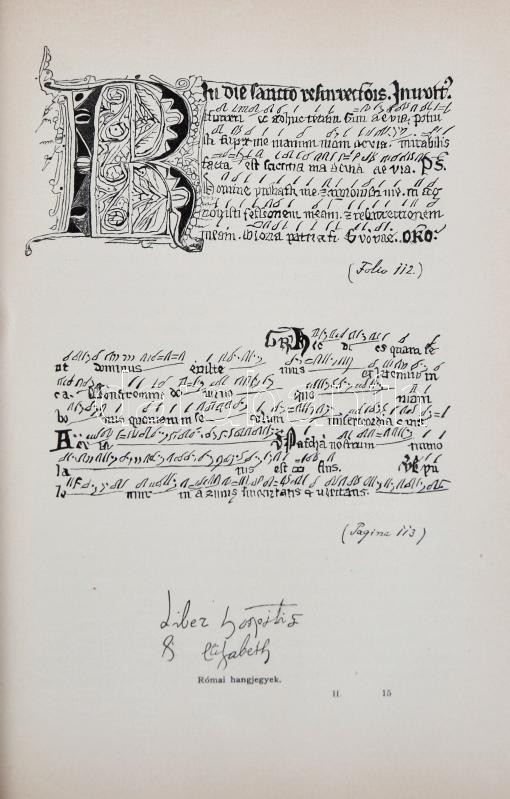 In die sancto resurrectõis. Introit?
R surrexi et adhuc tecum sum aevia. posui
sti super me manum tuam aevia. mirabilis
facta est sciencia tua aevia aevia. PS.
Domine probasti me. z cognovisti me. tu cog
novisti sessionem meam. z resurrectionem
meam. Gloria patri ati. Evovae. ORO?
(Folio 112.)
GR Hec di es quam fe
cit dominus exulte mus et letemur in
ea. Confitemine domino quoniam
bonus quoniam in se culum misericordia eius
Ae via v Pascha nostrum immo
la tus est xps. v Epu
le mur in azimis sinceritatis et veritatis.
(Pagina 113)
Liber hospitis
S Elizabeth
Római hangjegyek.
II 15